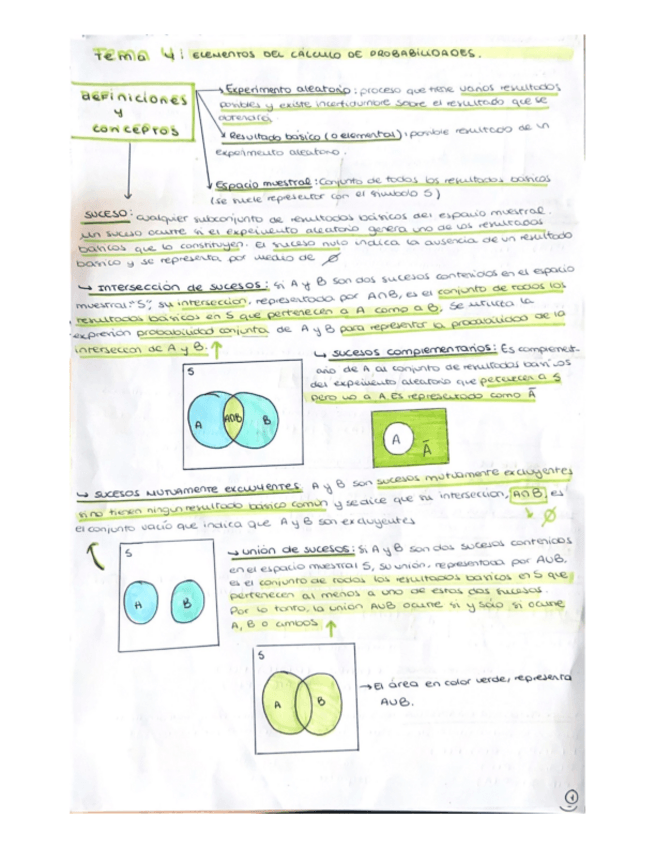 Tema 4: ELEMENTOS DEL CÁLCULO DE PROBABILIDADES.
definiciones
y
conceptos
Experimento aleatorio: proceso que tiene varios resultados
posibles y existe incertidumbre sobre el resultado que se
obtendrá.
Resultado básico (o elemental): posible resultado de un
experimento aleatorio.
Espacio muestral: Conjunto de todos los resultados básicos
(se suele representar con el símbolo S)
SUCESO: cualquier subconjunto de resultados básicos del espacio muestral.
Un suceso ocurre si el experimento aleatorio genera uno de los resultados
básicos que lo constituyen. El suceso nulo indica la ausencia de un resultado
básico y se representa por medio de ∅
↳ Intersección de sucesos: Si A y B son dos sucesos contenidos en el espacio
muestral "S", su intersección, representada por A∩B, es el conjunto de todos los
resultados básicos en S que pertenecen a A como a B. Se utiliza la
expresión probabilidad conjunta de A y B para representar la probabilidad de la
intersección de A y B. ↑
S
A
A∩B
B
↳ sucesos complementarios: Es complemet-
ario de A al conjunto de resultados básicos
del experimento aleatorio que pertenecen a S
pero no a A. Es representado como Ā
A
Ā
↳ SUCESOS MUTUAMENTE EXCLUYENTES. A y B son sucesos mutuamente excluyentes
si no tienen ningun resultado básico común y se dice que su intersección, A∩B, es
el conjunto vacío que indica que A y B son excluyentes
∅
S
A
B
↳ unión de sucesos: Si A y B son dos sucesos contenidos
en el espacio muestral S, su unión, representada por AUB.
es el conjunto de todos los resultados básicos en S que
pertenecen al menos a uno de estos dos sucesos.
Por lo tanto, la unión AUB ocurre si y sólo si ocurre
A, B o ambos. ↑
S
A
B
→ El área en color verde, representa
AUB.
1